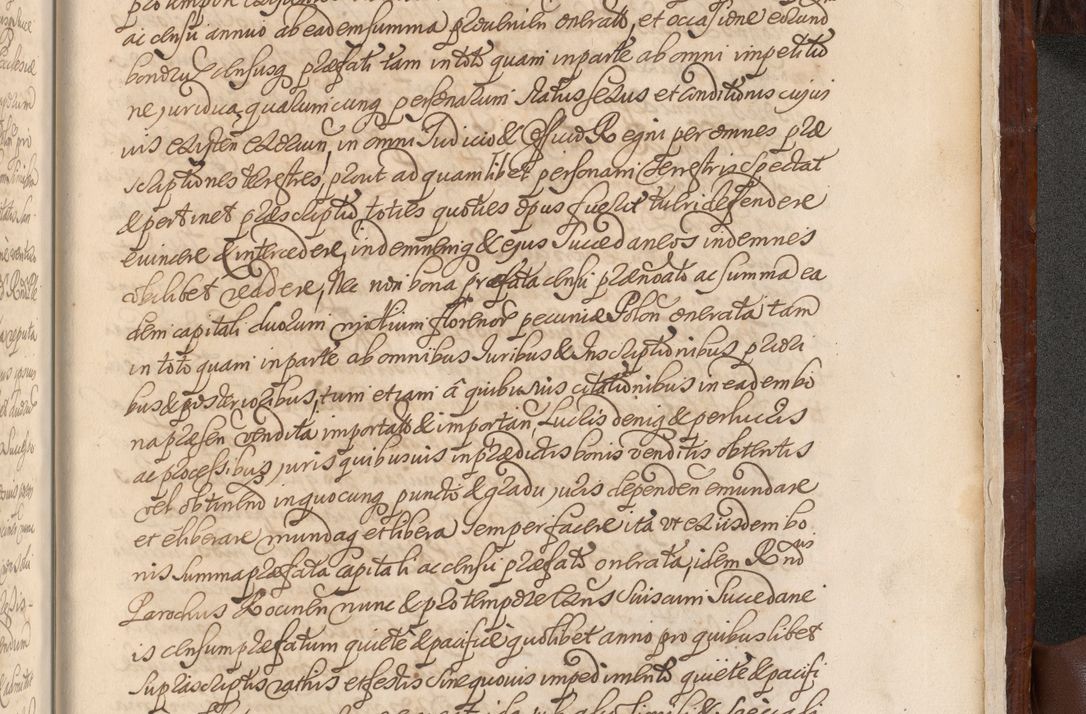 ac censu annuo ab eadem summa proveniен onerato, et occasione eorund
bonorū censusq præfati tam in toto quam in parte ab omni impetitio
ne juridica quarumcunq personarum status sexus et conditionis cujus
vis existen ex eorum, in omni Judicio & Officio Regni per omnes præ
scriptiones terrestres, prout ad quamlibet personam terrestris spectat
& pertinet præscriptio, toties quoties opus fuerit tueri defendere
evincere & intercedere, indemnemq & ejus Succedaneos indemnes
ubilibet reddere, Nec non bona præfata censu prænoato ac summa ea
dem capitali duorum millium florenor pecuniæ Polon onerata tam
in toto quam in parte ab omnibus Juribus & Inscriptionibus priori
bus & posterioribus, tum etiam à quibusvis citationibus in eadem bo
na præsen vendita, importatis & importan Lucris deniq & perlucris
ac processibus, juris quibusvis in prædictis bonis venditis obtentis
vel obtinend in quocunq puncto & gradu, juris dependen emundare
et eliberare mundaq et libera semper facere ita ut ex iisdem bo
nis summa præfata capitali ac censu præfato onerata, idem Rnd[us]
Parochus Rocinen nunc & pro tempore existens suis cum Succedane
is censum præfatum quiete & pacifice quolibet anno pro quibuslibet
suprascriptis rathis et festis sine quovis impedimento quiete & pacifi